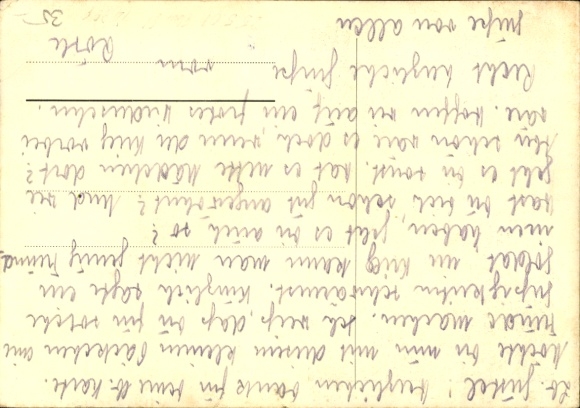 Lb. Jüstel! Herzlichen Dank für deine lb. Karte.
Möchte dir nun mit diesem kleinen Päckchen eine
Freude machen. Ich weiß, daß du für solche
Süßigkeiten schwärmst. Kürzlich sagte ein
Soldat, im Krieg kann man nicht genug Freunde
haben, geht es dir auch so?
Hast du dich schon gut angewöhnt? Und wie
geht es dir sonst. Hat es nette Mädchen dort?
schön wäre es doch, wenn der Krieg vorbei
wäre. Hoffen wir auf ein frohes Wiedersehen.
Recht herzliche Grüße
von
Rösle
Grüße von allen
35